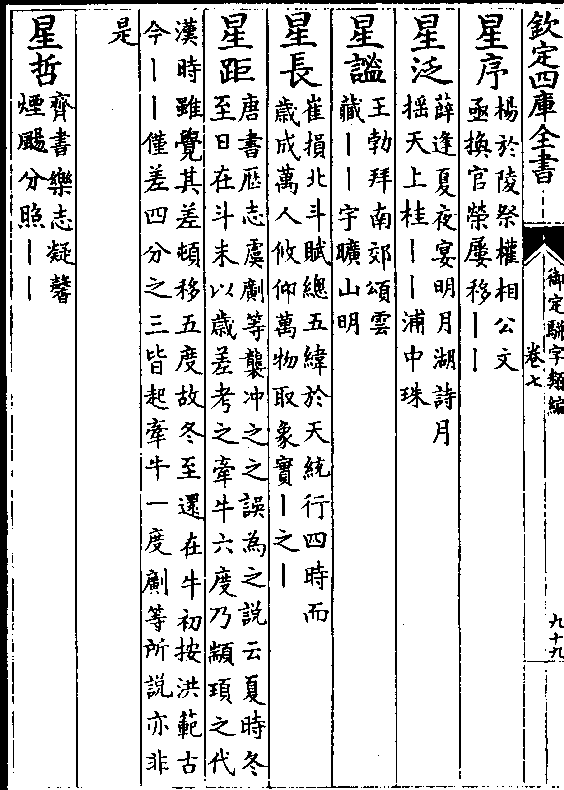 欽定四庫全書
御定駢字類編
卷七
九十九
星序
楊於陵祭權相公文
亟換官榮屢移丨丨
星泛
薛逢夏夜宴明月湖詩月
揺天上桂丨丨浦中珠
星謐
王勃拜南郊頌雲
藏丨丨宇曠山明
星長
崔損北斗賦總五緯於天統行四時而
歳成萬人攸仰萬物取象實丨之丨
星距
唐書厯志虞𠠎等襲冲之之誤為之説云夏時冬
至日在斗末以歳差考之牽牛六度乃顓頊之代
漢時雖覺其差頓移五度故冬至還在牛初按洪範古
今丨丨僅差四分之三皆起牽牛一度𠠎等所説亦非
是
星哲
齊書樂志凝馨
煙颺分照丨丨